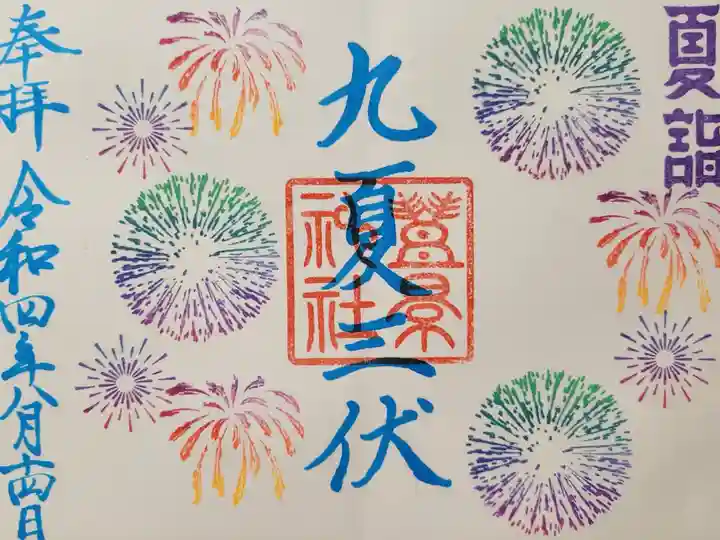 夏詣
九夏三伏
葛景神社
奉拝
令和四年八月十四日